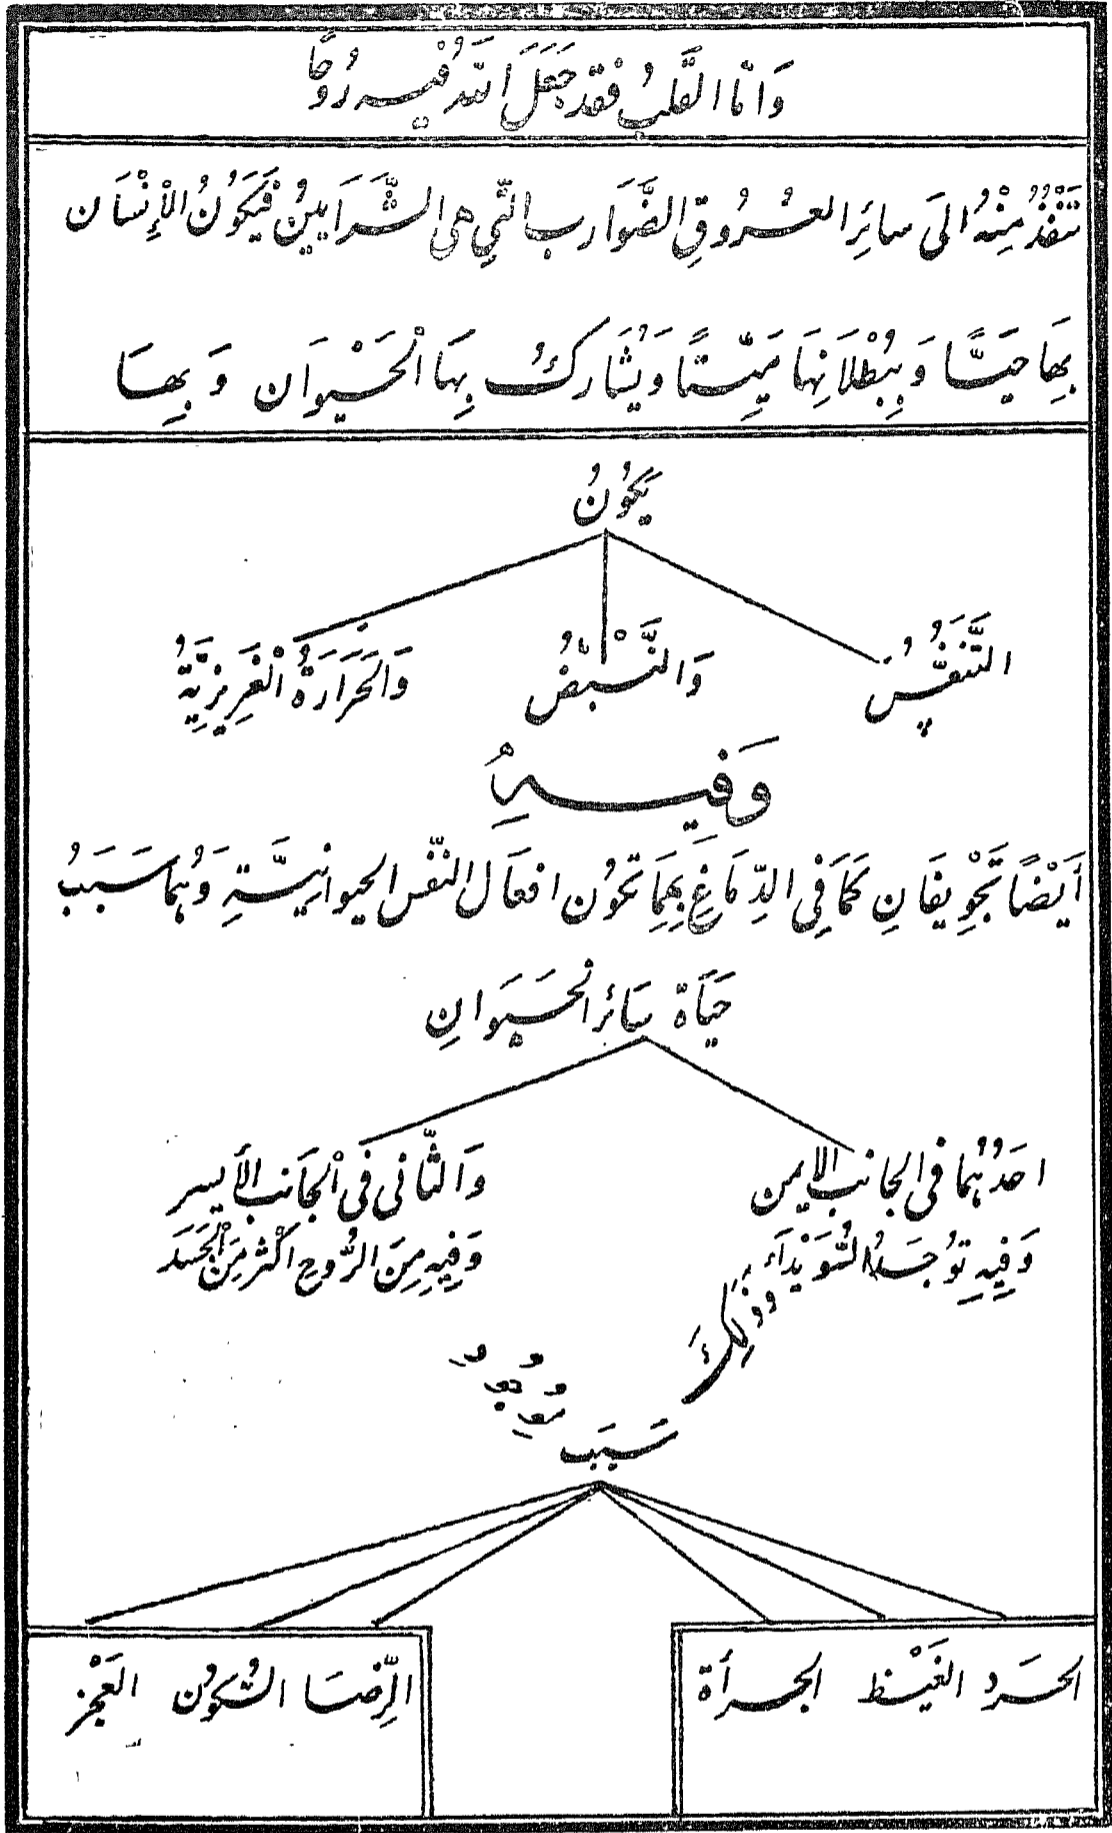 وَامّا القَلبُ فَقد جَعَلَ اللهُ فيه رُوحًا
تَنْفُذُ مِنْهُ الىَ سائِرِ العُرُوقِ الضَّوَارب التّي هى الشَّرَايينُ فَيَكوُنُ الْإِنْسَان
بِهَا حَيًّا وَبِبُطْلَانِهَا مَيِّتًا وَيُشَارِكُ بِهَا الْحَيْوَان وَبِهَا
يَكوُنُ
التَّنَفُّسُ وَالنَّبْضُ وَالَحَرَارَةُ الْغَرِيزِيَّةُ
وَفِيهِ
أَيْضًا تَجْوِيفَانِ كَمَا فِي الدِّمَاغِ بِهِمَا تَكوُن افعَال النّفس الحيوانِيَّةِ وَهُمَا سَبَبُ
حَيَاَة سَائر الْحَيَوانِ
احَدُهُما فى الجانب الايمن
وَفِيهِ توُجَدُ السُّوَيْدَاَء
وَالثّانى فى اْلجَانب الأَيسر
وَفِيهِ مِنَ الرُّوحِ اكْثر مِنَ الْجَسَد
وَذَلِكَ
سَبَب
الحَرَد الغَيْظ الجرأة
الرِّضَا السُّكوُن العَجْز